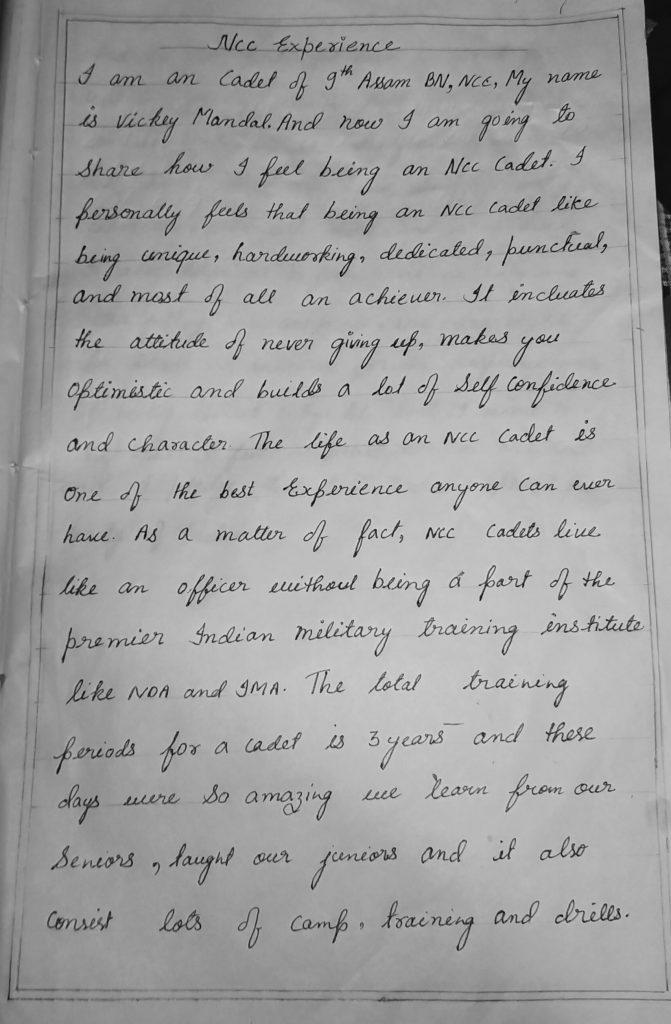 Ncc Experience
I am an Cadet of 9th Assam BN, NCC, My name
is Vickey Mandal. And now I am going to
share how I feel being an Ncc Cadet. I
personally feels that being an NCC cadet like
being unique, hardworking, dedicated, punctual,
and most of all an achiever. It incluates
the attitude of never giving up, makes you
optimistic and builds a lot of Self confidence
and character. The life as an NCC Cadet is
one of the best Experience anyone can ever
have. As a matter of fact, NCC Cadets live
like an officer without being a part of the
premier Indian military training institute
like NDA and IMA. The total training
periods for a cadet is 3 years and these
days were so amazing we learn from our
Seniors, taught our juniors and it also
Consist lots of camp, training and drills.